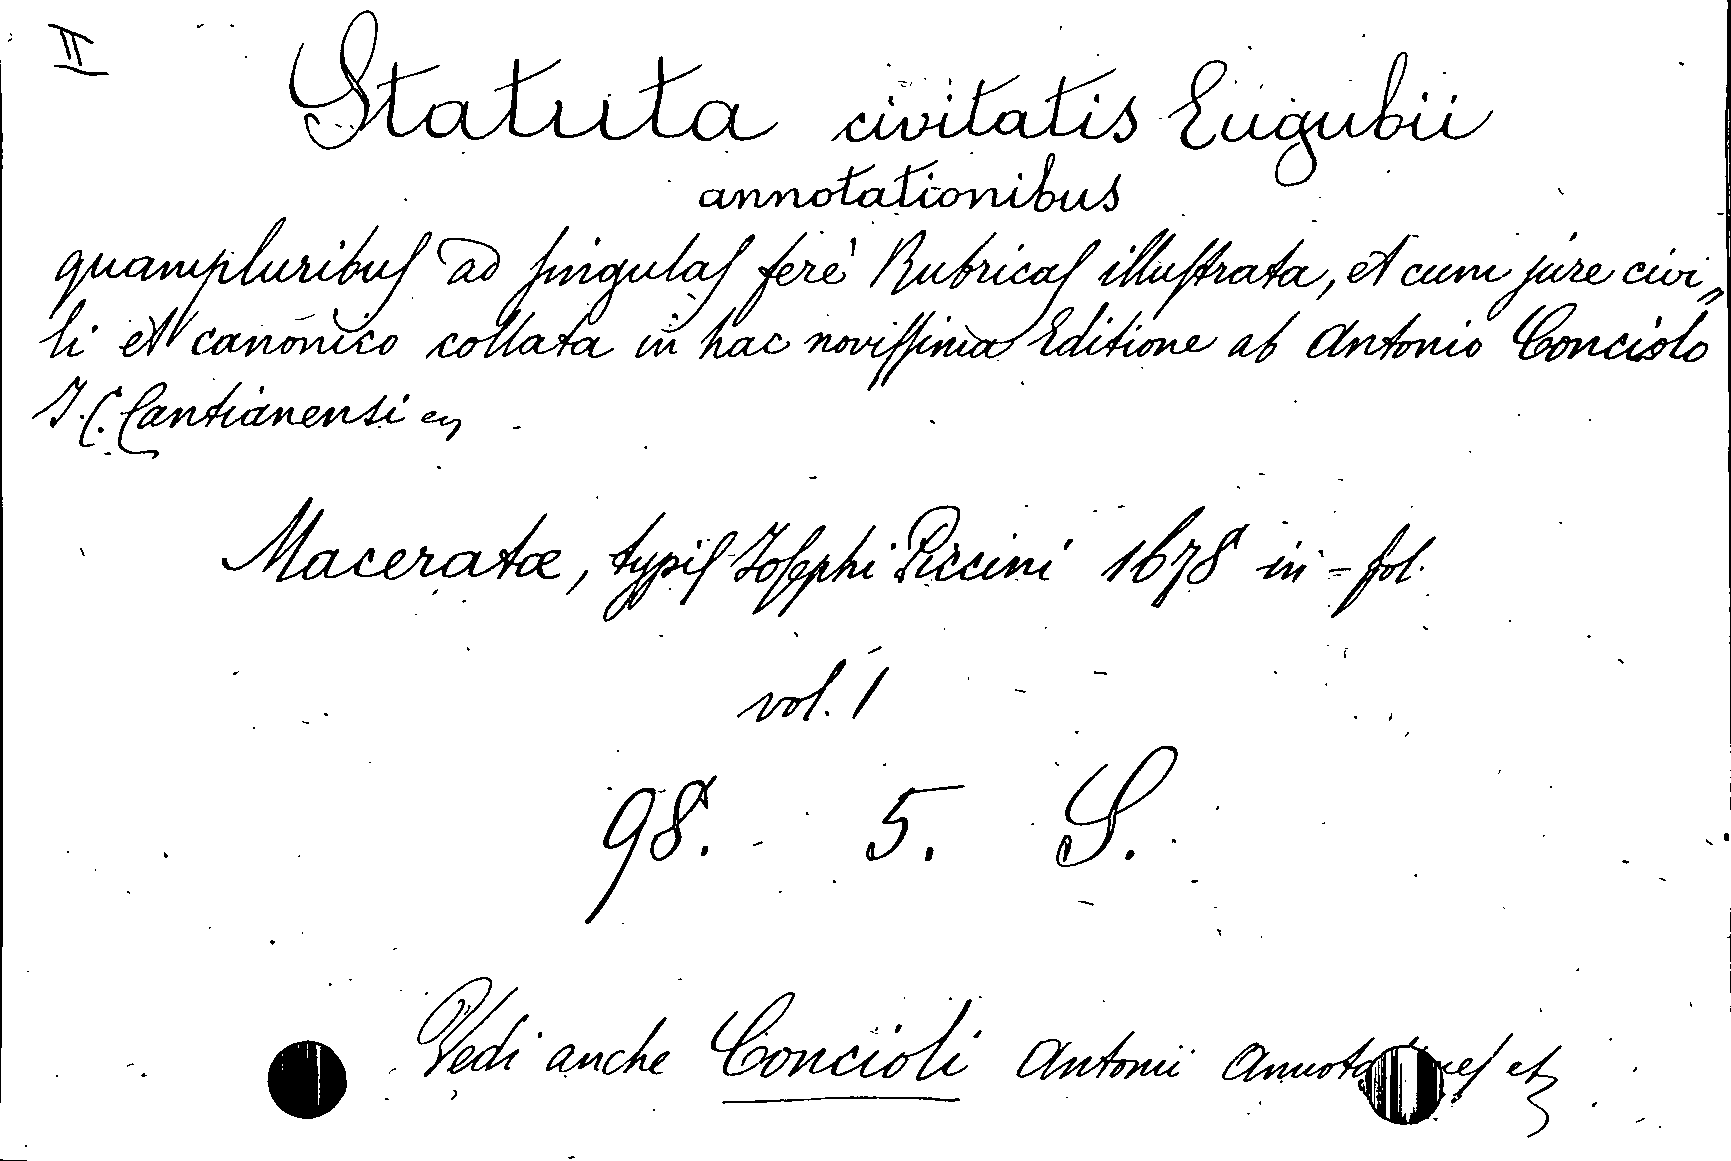 II
Statuta civitatis Eugubii
annotationibus
quampluribus ad singulas ferè Rubricas illustrata, et cum jure civi„
li et canonico collata in hac novissima Editione ab Antonio Conciolo
J. C. Cantianensi
Maceratæ, typis Josephi Piccini 1678 in-fol.
vol. 1
98. 5. S.
Vedi anche Concioli Antonii